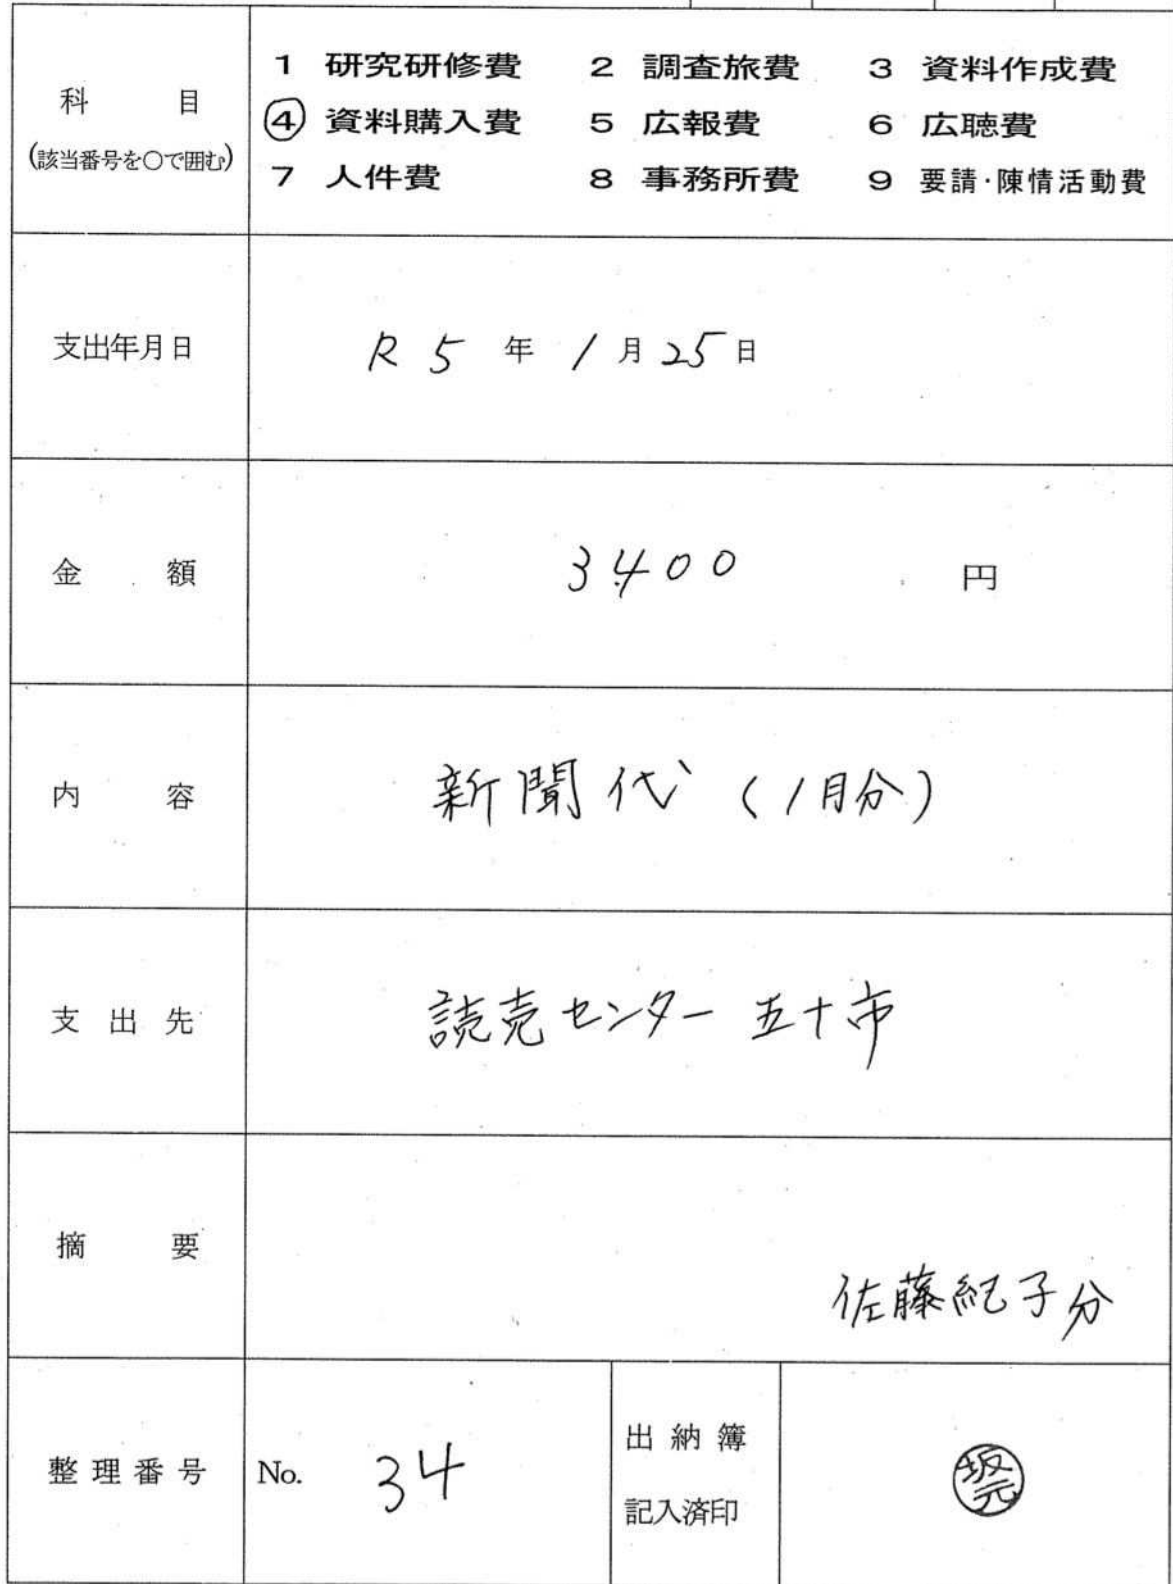 1 研究研修費 2 調査旅費 3 資料作成費
科目 ④ 資料購入費 5 広報費 6 広聴費
(該当番号を○で囲む) 7 人件費 8 事務所費 9 要請・陳情活動費
支出年月日 R5年1月25日
金額 3400円
内容 新聞代(1月分)
支出先 読売センター五十市
摘要 佐藤紀子分
整理番号 No. 34 出納簿
記入済印 坂元